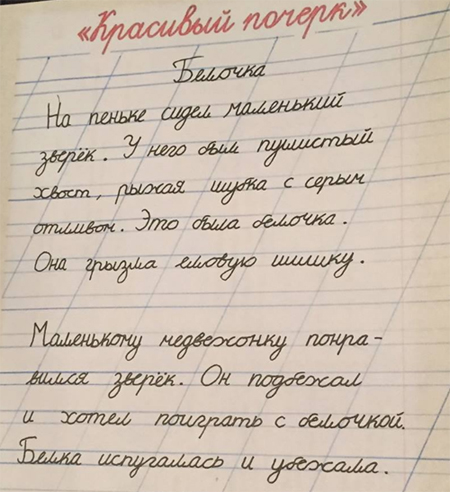 «Красивый почерк»
Белочка
На пеньке сидел маленький
зверёк. У него был пушистый
хвост, рыжая шубка с серым
отливом. Это была белочка.
Она грызла еловую шишку.
Маленькому медвежонку понра-
вился зверёк. Он подбежал
и хотел поиграть с белочкой.
Белка испугалась и убежала.